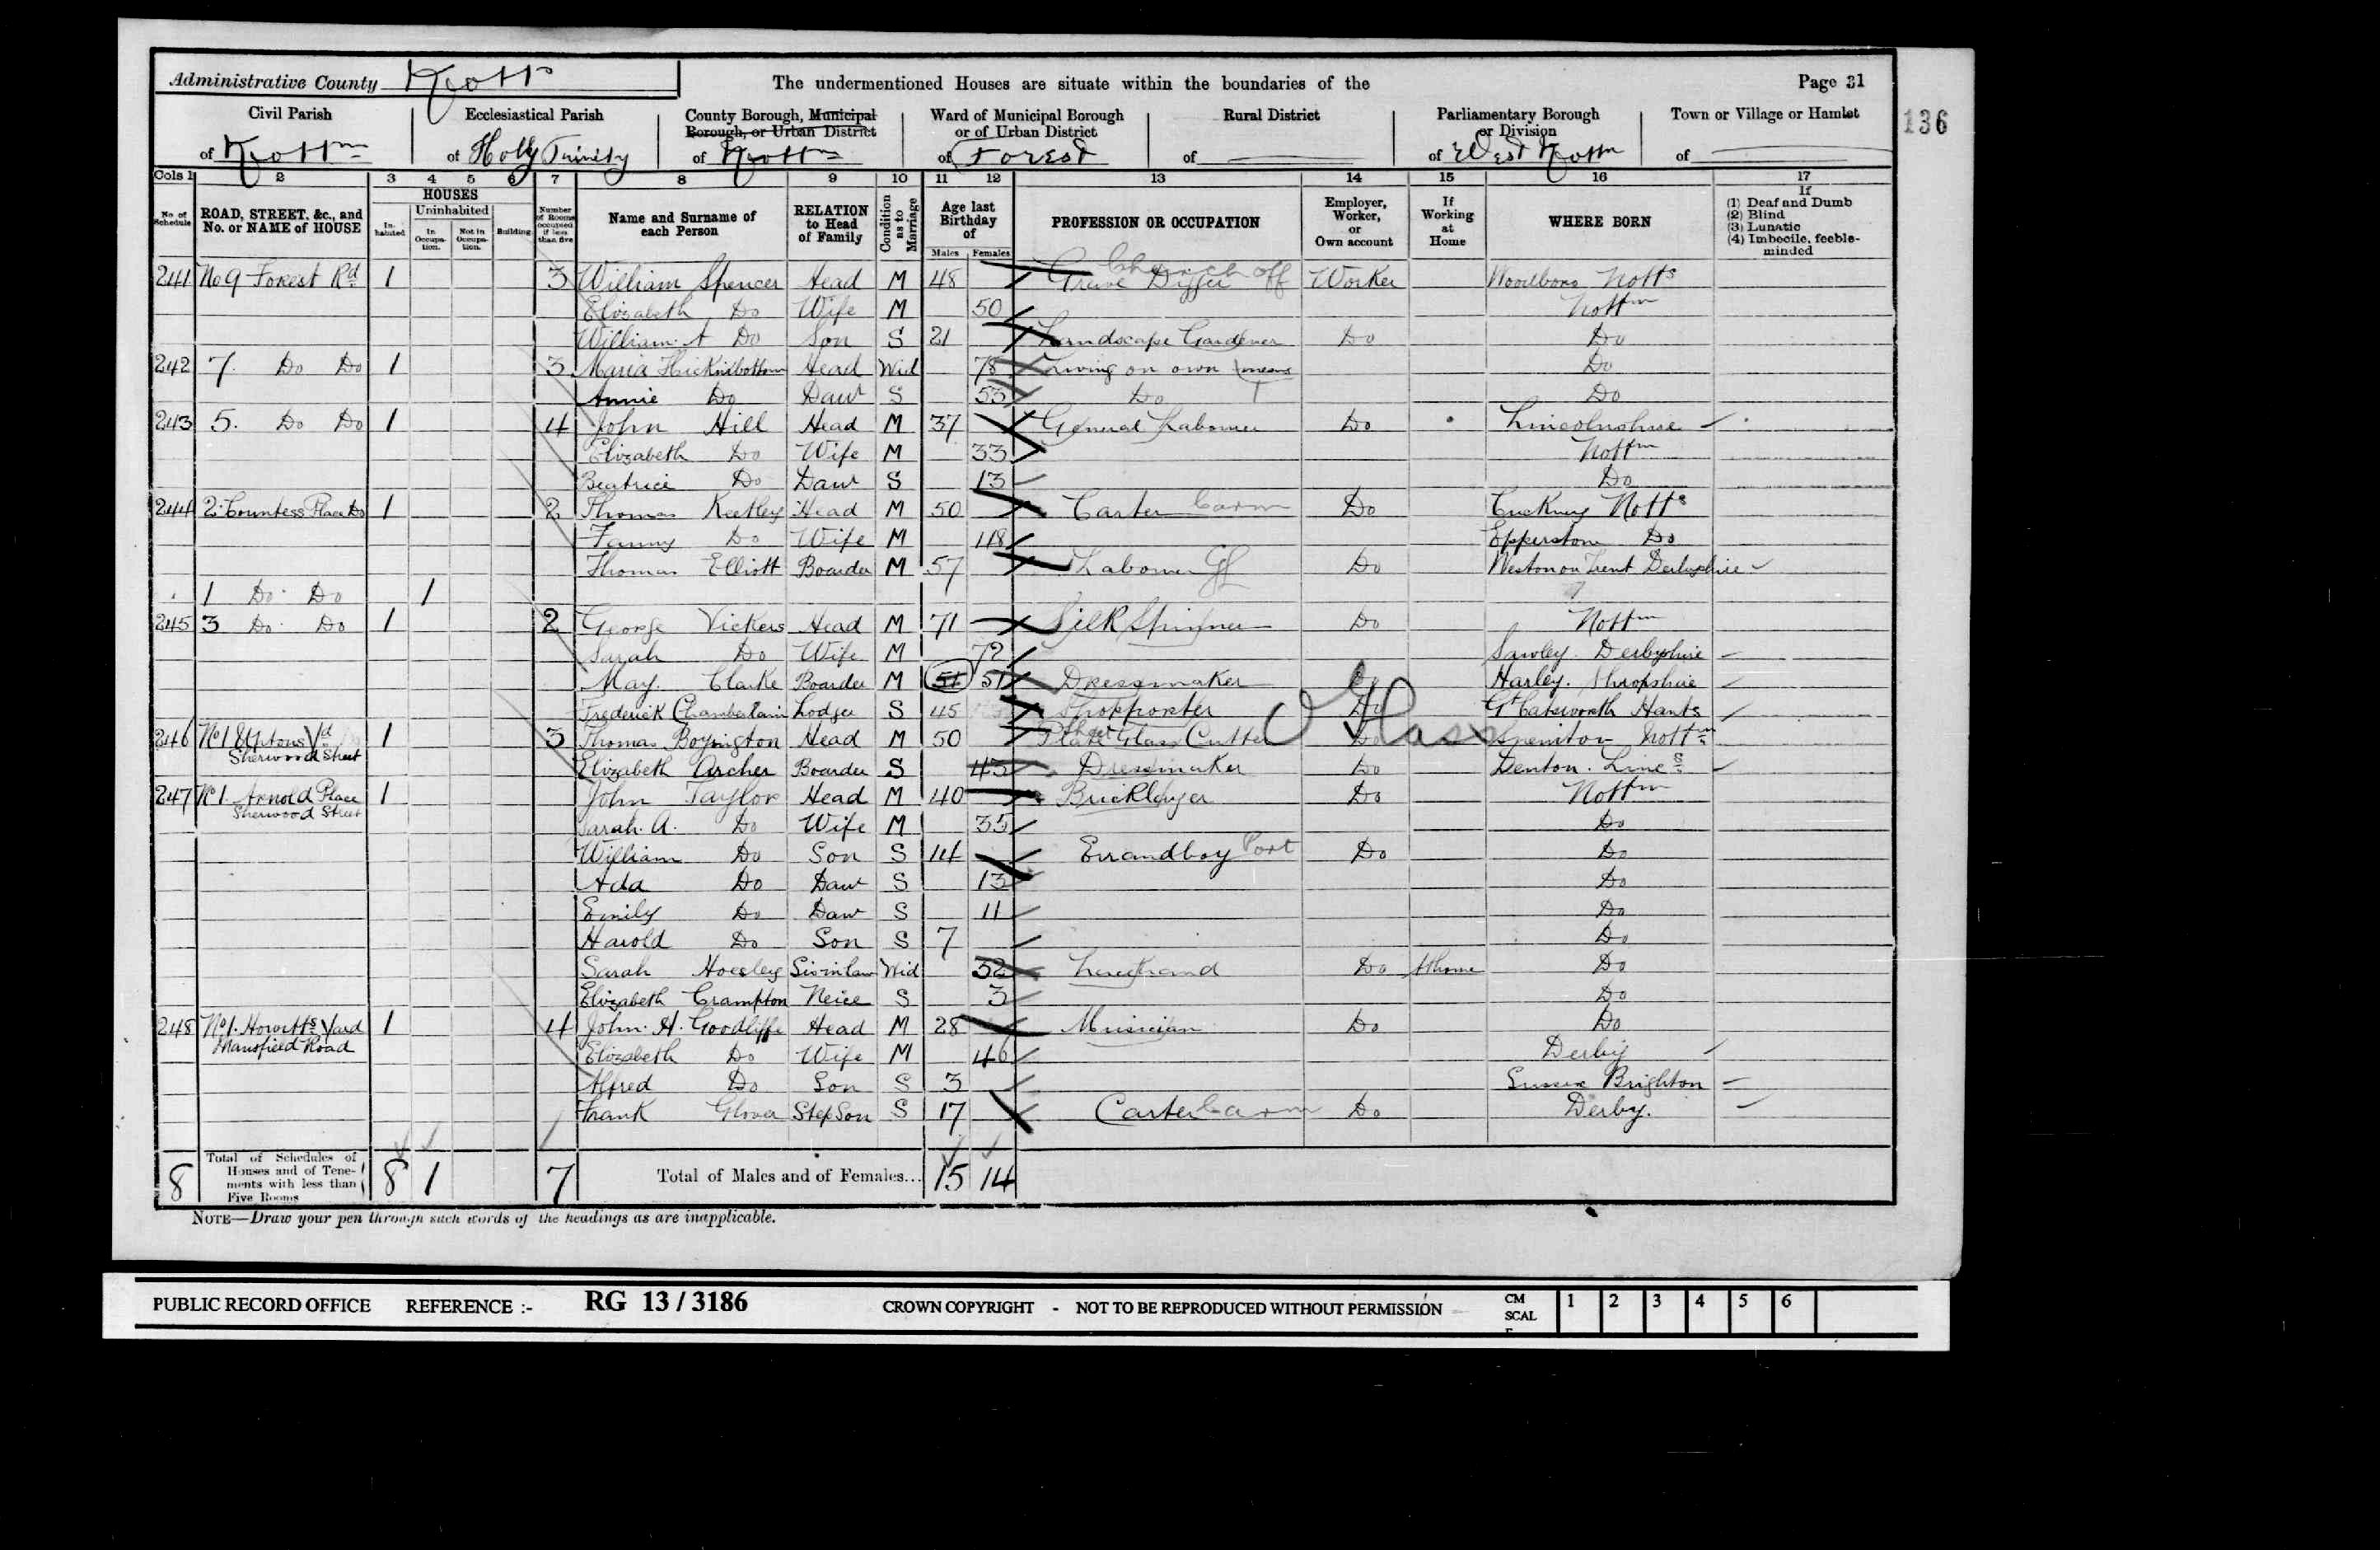 Administrative County Notts
The undermentioned Houses are situate within the boundaries of the
Page 31
136
Civil Parish
of Nottm
Ecclesiastical Parish
of Holy Trinity
County Borough, Municipal
Borough, or Urban District
of Nottm
Ward of Municipal Borough
or of Urban District
of Forest
Rural District
of
Parliamentary Borough
or Division
of West Nottm
Town or Village or Hamlet
of
Cols 1 2 3 4 5 6 7 8 9 10 11 12 13 14 15 16 17
No. of Schedule
ROAD, STREET, &c., and
No. or NAME of HOUSE
HOUSES
In-habited
Uninhabited
In Occupa-tion.
Not in Occupa-tion.
Building
Number of Rooms occupied if less than five
Name and Surname of
each Person
RELATION
to Head
of Family
Condition as to Marriage
Age last
Birthday
of
Males Females
PROFESSION OR OCCUPATION
Employer,
Worker,
or
Own account
If
Working
at
Home
WHERE BORN
If
(1) Deaf and Dumb
(2) Blind
(3) Lunatic
(4) Imbecile, feeble-
minded
241 No 9 Forest Rd 1 3 William Spencer Head M 48 Grave Digger Church off Worker Woodboro Notts
Elizabeth Do Wife M 50 Nottm
William A Do Son S 21 Landscape Gardener Do Do
242 7. Do Do 1 3 Maria Hicknibottom Head Wid 78 Living on own means Do
Annie Do Daur S 53 Do Do
243 5. Do Do 1 4 John Hill Head M 37 General Labourer Do Lincolnshire
Elizabeth Do Wife M 33 Nottm
Beatrice Do Daur S 13 Do
244 2 Countess Place Do 1 2 Thomas Keetley Head M 50 Carter Carm Do Cuckney Notts
Fanny Do Wife M 48 Epperstone Do
Thomas Elliott Boarder M 57 Labourer Gl Do Weston on Trent Derbyshire
1 Do Do 1
245 3 Do Do 1 2 George Vickers Head M 71 Silk Spinner Do Nottm
Sarah Do Wife M 72 Sawley Derbyshire
May. Clarke Boarder M 51 51 Dressmaker Do Harley. Shropshire
Frederick Chamberlain Lodger S 45 Shopporter Do Gt Hants
246 No 1 Uptons Yd 1 3 Thomas Boyington Head M 50 Plate Glass Cutter Do Glass Nottm
Sherwood Street
Elizabeth Archer Boarder S 43 Dressmaker Do Denton. Lincs
247 No 1. Arnold Place 1 John Taylor Head M 40 Bricklayer Do Nottm
Sherwood Street
Sarah. A. Do Wife M 35 Do
William Do Son S 14 Errandboy Port Do Do
Ada Do Daur S 13 Do
Emily Do Daur S 11 Do
Harold Do Son S 7 Do
Sarah Hoesley Sisinlaw Wid 52 Lacehand Do At home Do
Elizabeth Crampton Neice S 3 Do
248 No 1. Howitts Yard 1 4 John. H. Goodliffe Head M 28 Musician Do Do
Mansfield Road
Elizabeth Do Wife M 46 Derby
Alfred Do Son S 3 Sussex Brighton
Frank Glover Step Son S 17 Carter Carm Do Derby.
8 Total of Schedules of
Houses and of Tene-
ments with less than
Five Rooms
8 1 7 Total of Males and of Females... 15 14
NOTE—Draw your pen through such words of the headings as are inapplicable.
PUBLIC RECORD OFFICE REFERENCE :- RG 13 / 3186 CROWN COPYRIGHT - NOT TO BE REPRODUCED WITHOUT PERMISSION
CM
SCAL
E
1 2 3 4 5 6